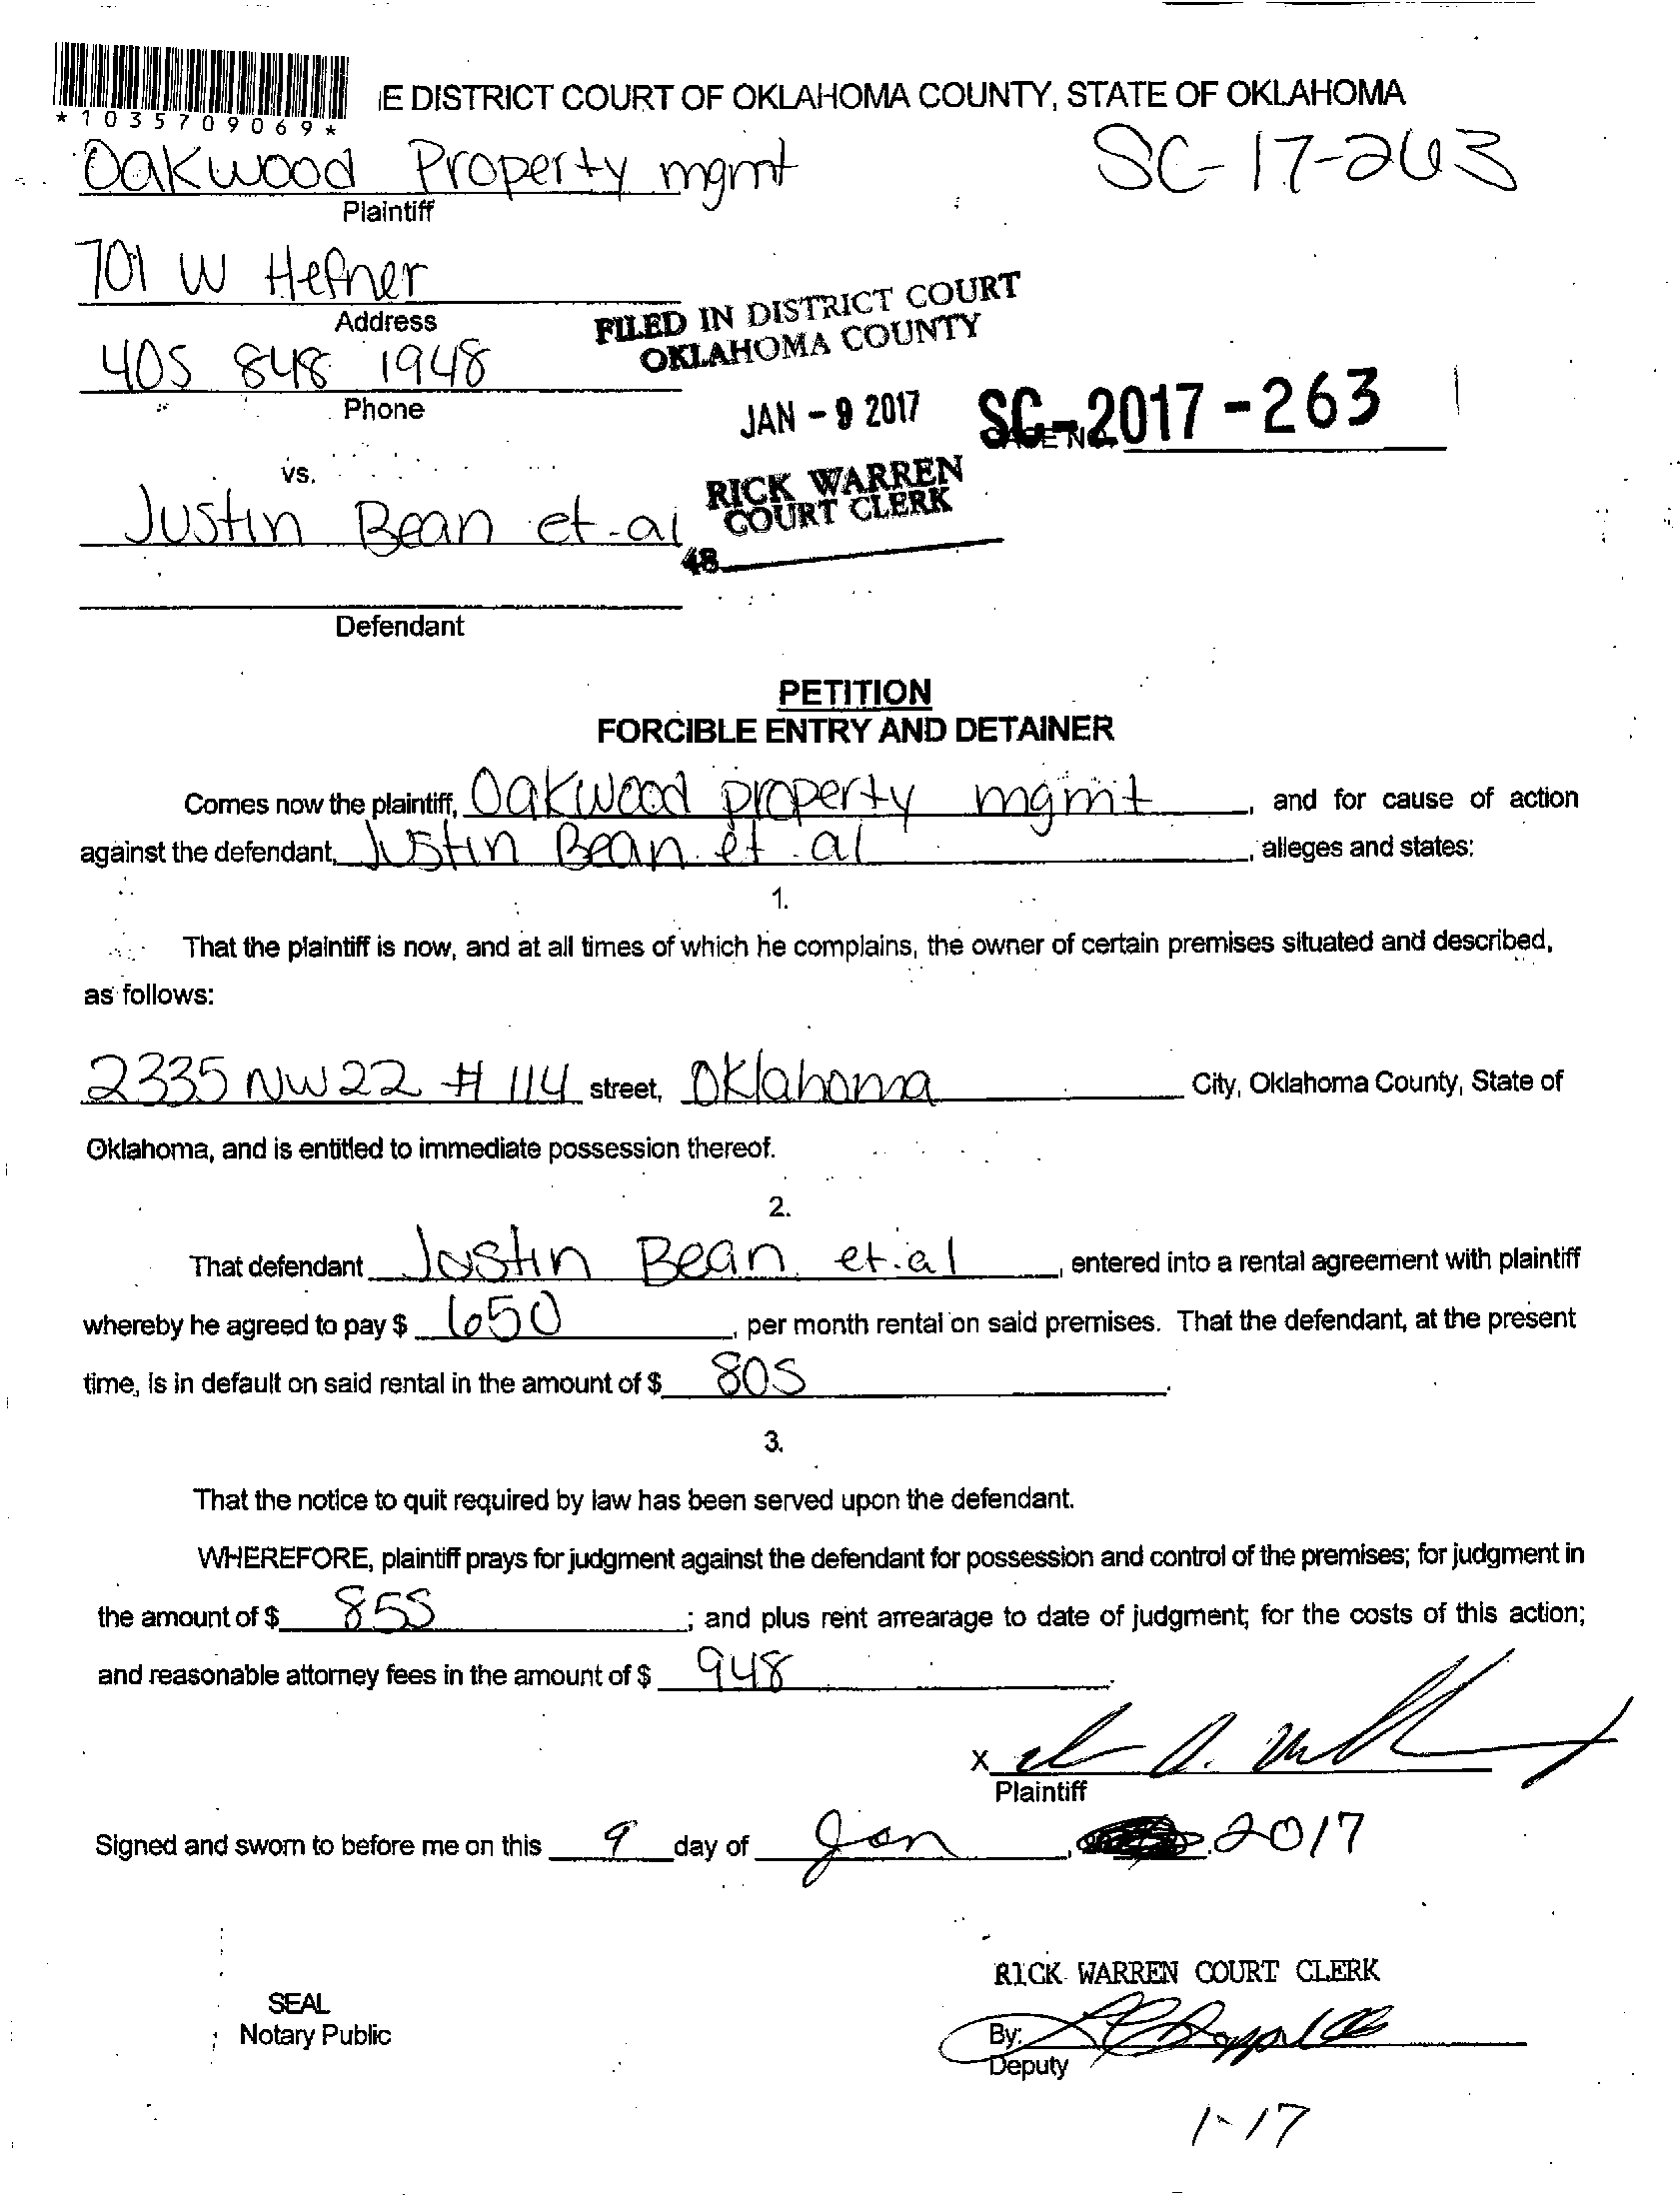 *1035709069*
E DISTRICT COURT OF OKLAHOMA COUNTY, STATE OF OKLAHOMA
Oakwood Property mgmt
SC-17-263
Plaintiff
701 W Hefner
Address
FILED IN DISTRICT COURT
OKLAHOMA COUNTY
405 848 1948
Phone
JAN - 9 2017
SC-2017-263
CASE NO.
vs.
RICK WARREN
COURT CLERK
Justin Bean et-al
48
Defendant
PETITION
FORCIBLE ENTRY AND DETAINER
Comes now the plaintiff, Oakwood property mgmt, and for cause of action
against the defendant, Justin Bean et. al, alleges and states:
1.
That the plaintiff is now, and at all times of which he complains, the owner of certain premises situated and described,
as follows:
2335 NW 22 # 114 street, Oklahoma City, Oklahoma County, State of
Oklahoma, and is entitled to immediate possession thereof.
2.
That defendant Justin Bean et.al, entered into a rental agreement with plaintiff
whereby he agreed to pay $ 650, per month rental on said premises. That the defendant, at the present
time, is in default on said rental in the amount of $ 805.
3.
That the notice to quit required by law has been served upon the defendant.
WHEREFORE, plaintiff prays for judgment against the defendant for possession and control of the premises; for judgment in
the amount of $ 855; and plus rent arrearage to date of judgment; for the costs of this action;
and reasonable attorney fees in the amount of $ 948.
X
Plaintiff
Signed and sworn to before me on this 9 day of Jan, 2017
RICK WARREN COURT CLERK
SEAL
Notary Public
By:
Deputy
1-17